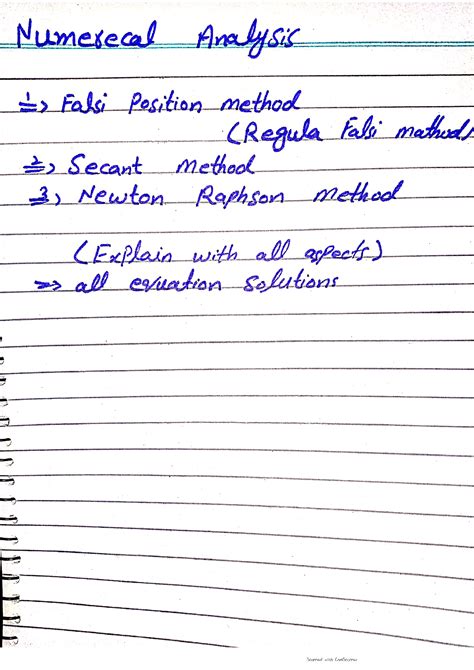 Numerecal Analysis
1=> Falsi Position method
(Regula Falsi mathod)
2=> Secant method
3=> Newton Raphson method
(Explain with all aspects)
=> all evuation solutions
Scanned with CamScanner